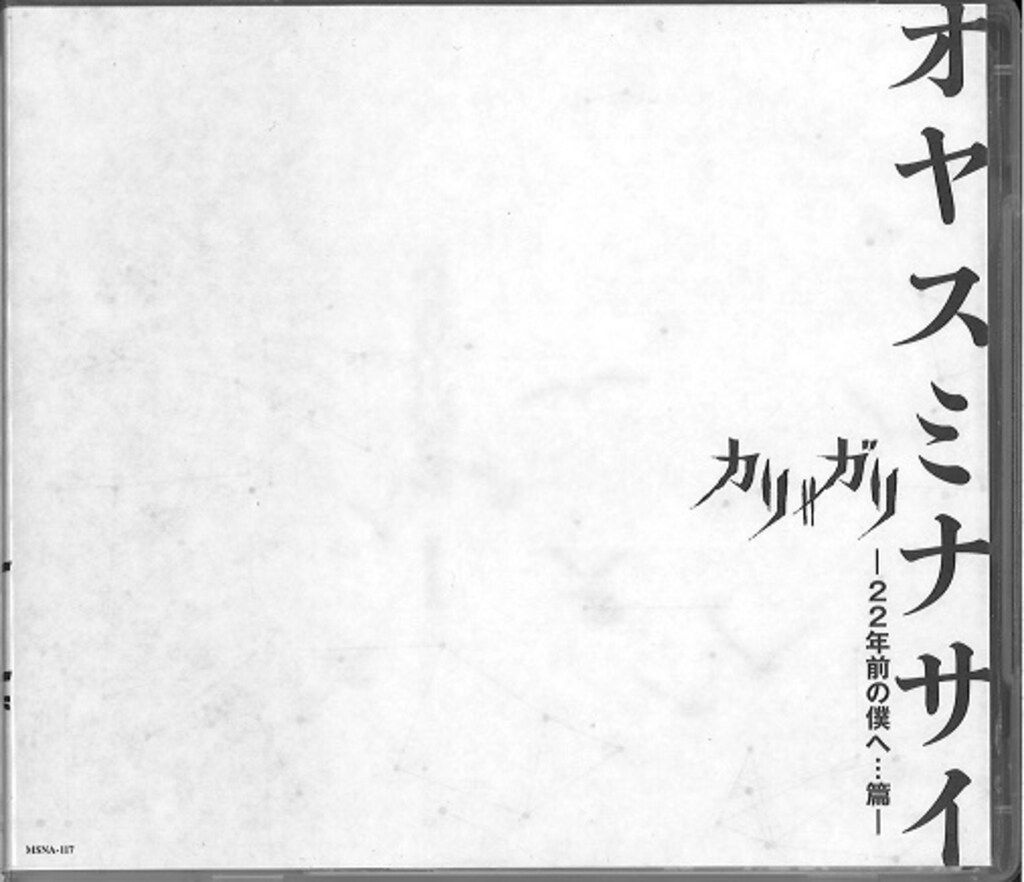 オヤスミナサイ
カリ≠ガリ
—22年前の僕へ…篇—
MSNA-117